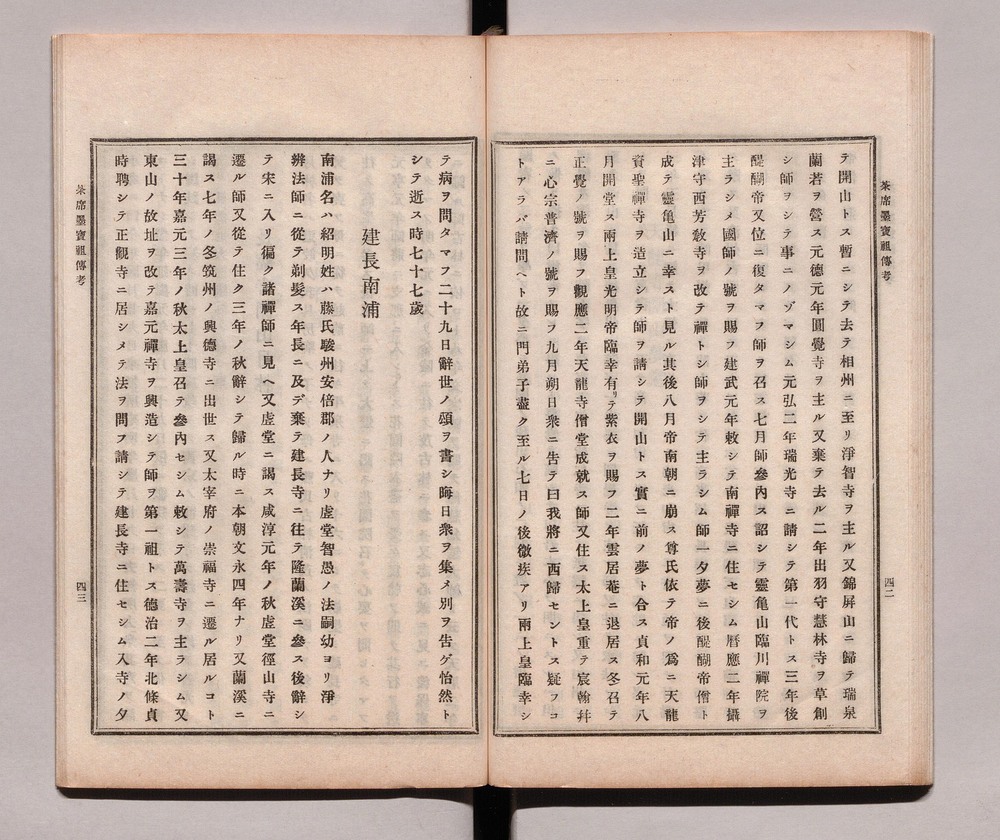 茶席墨寶祖傳考
四二
テ開山トス暫ニシテ去テ相州ニ至リ淨智寺ヲ主ル又錦屏山ニ歸テ瑞泉
蘭若ヲ營ス元德元年圓覺寺ヲ主ル又棄テ去ル二年出羽守慧林寺ヲ草創
シ師ヲシテ事ニノゾマシム元弘二年瑞光寺ニ請シテ第一代トス三年後
醍醐帝又位ニ復タマフ師ヲ召ス七月師參內ス詔シテ靈亀山臨川禪院ヲ
主ラシメ國師ノ號ヲ賜フ建武元年敕シテ南禪寺ニ住セシム曆應二年攝
津守西芳敎寺ヲ改テ禪トシ師ヲシテ主ラシム師一夕夢ニ後醍醐帝僧ト
成テ靈亀山ニ幸スト見ル其後八月帝南朝ニ崩ス尊氏依テ帝ノ爲ニ天龍
資聖禪寺ヲ造立シテ師ヲ請シテ開山トス實ニ前ノ夢ト合ス貞和元年八
月開堂ス兩上皇光明帝臨幸有リテ紫衣ヲ賜フ二年雲居菴ニ退居ス冬召テ
正覺ノ號ヲ賜フ觀應二年天龍寺僧堂成就ス師又住ス太上皇重テ宸翰幷
ニ心宗普濟ノ號ヲ賜フ九月朔日衆ニ告テ曰我將ニ西歸セントス疑フコ
トアラバ請問ヘト故ニ門弟子盡ク至ル七日ノ後微疾アリ兩上皇臨幸シ
テ病ヲ問タマフ二十九日辭世ノ頌ヲ書シ晦日衆ヲ集メ別ヲ告ゲ怡然ト
シテ逝ス時七十七歲
建長南浦
南浦名ハ紹明姓ハ藤氏駿州安倍郡ノ人ナリ虛堂智愚ノ法嗣幼ヨリ淨
辨法師ニ從テ剃髮ス年長ニ及デ棄テ建長寺ニ往テ隆蘭溪ニ參ス後辭シ
テ宋ニ入リ徧ク諸禪師ニ見ヘ又虛堂ニ謁ス咸淳元年ノ秋虛堂徑山寺ニ
遷ル師又從テ住ク三年ノ秋辭シテ歸ル時ニ本朝文永四年ナリ又蘭溪ニ
謁ス七年ノ冬筑州ノ興德寺ニ出世ス又太宰府ノ崇福寺ニ遷ル居ルコト
三十年嘉元三年ノ秋太上皇召テ參內セシム敕シテ萬壽寺ヲ主ラシム又
東山ノ故址ヲ改テ嘉元禪寺ヲ興造シテ師ヲ第一祖トス德治二年北條貞
時聘シテ正觀寺ニ居シメテ法ヲ問フ請シテ建長寺ニ住セシム入寺ノ夕
茶席墨寶祖傳考
四三